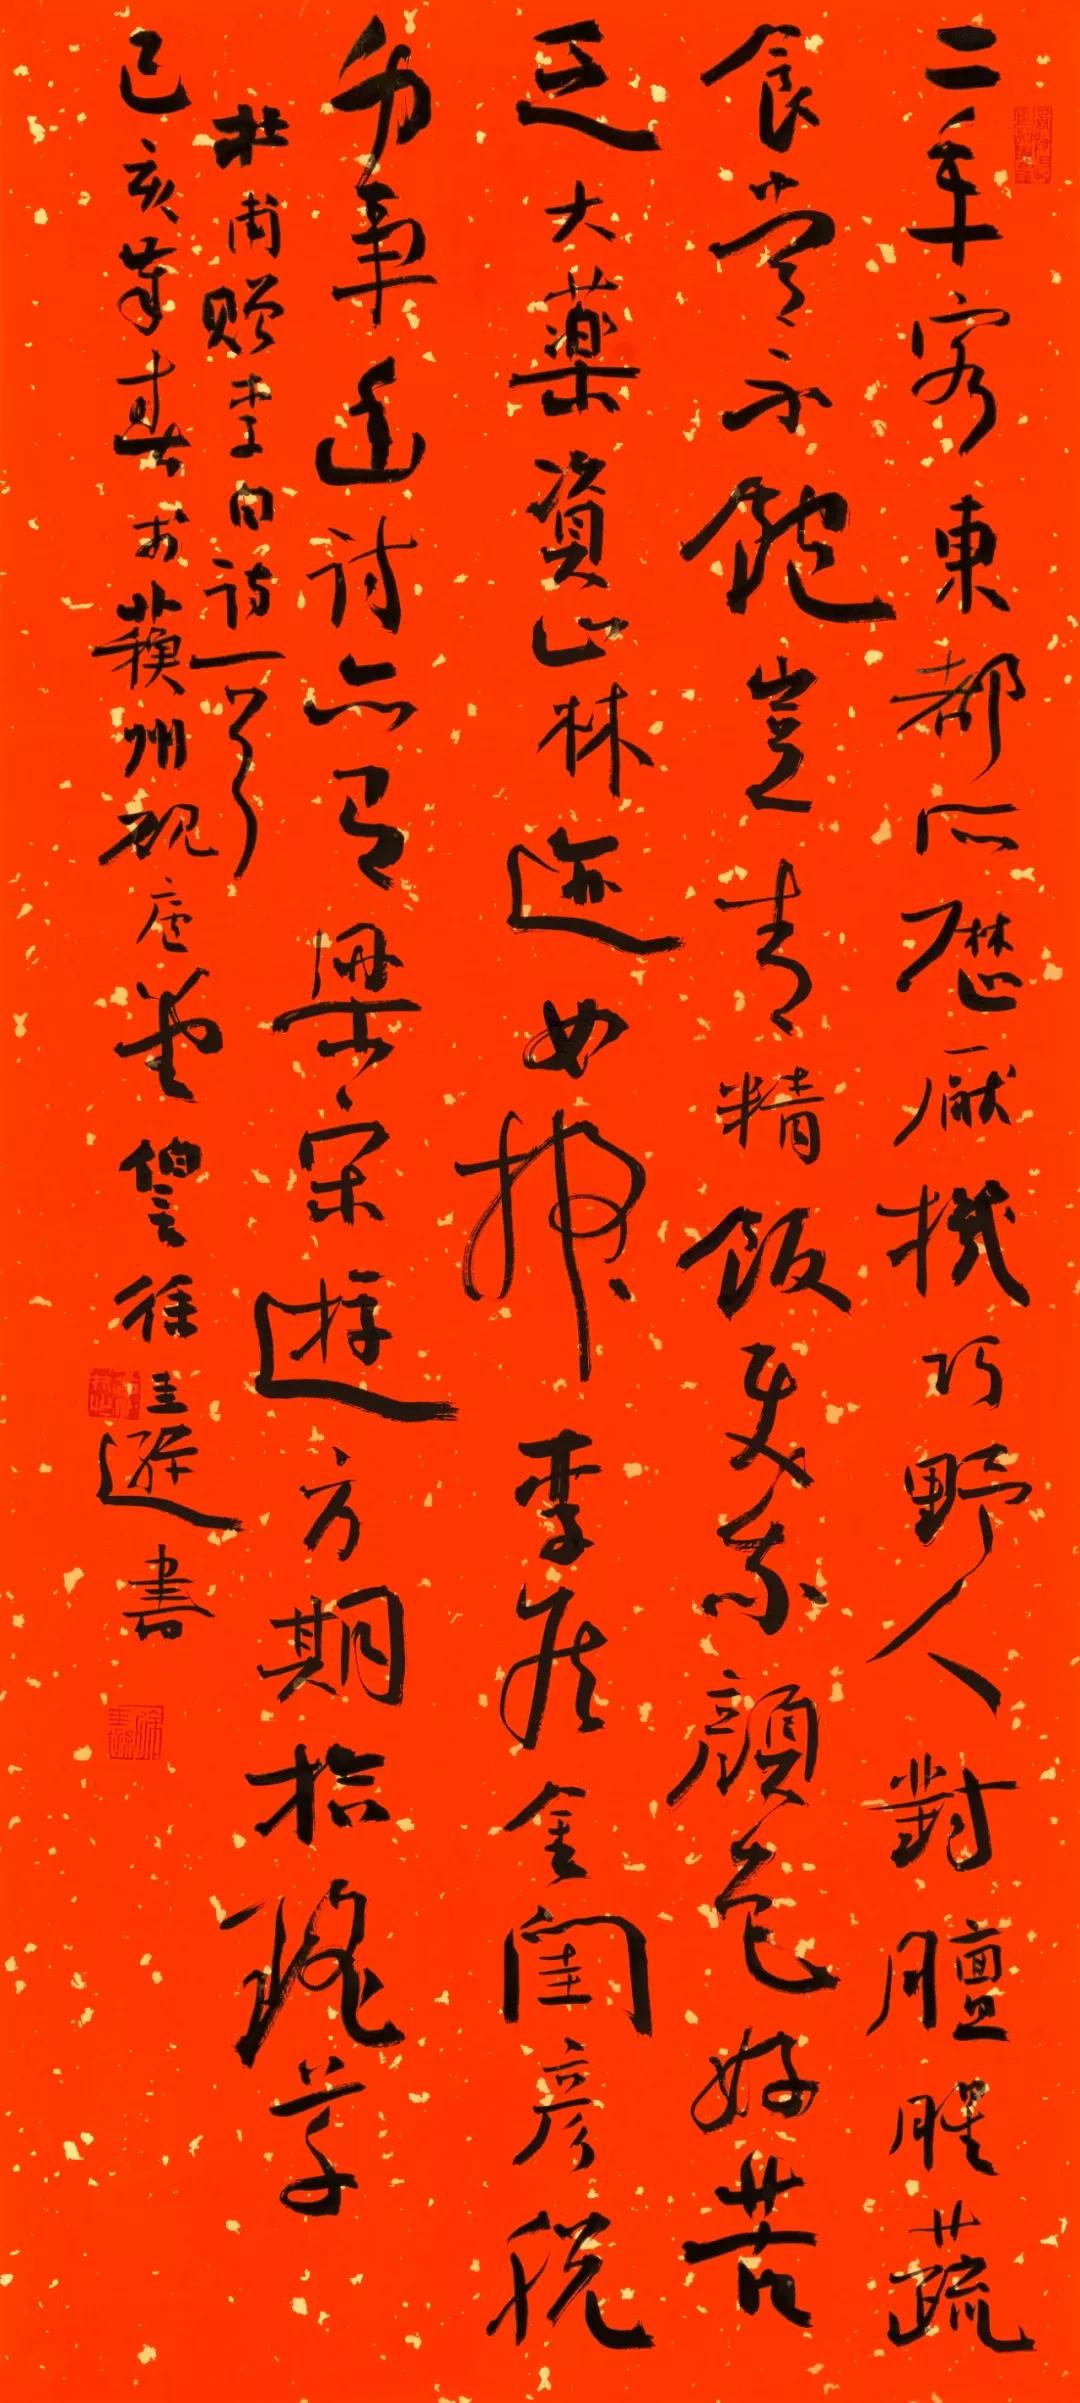 二年客東都所歷厭機巧野人對膻腥蔬
食常不飽豈青精飯使我顏色好苦
乏大藥資山林迹如掃李侯金閨彥税
身事幽討亦有梁宋遊方期拾瑤草
杜甫贈李白詩一首
己亥年春於蘇州硯廬徐圭遜書